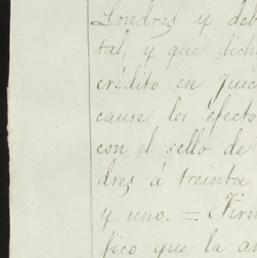 Londres y deb
tal, y que dich
crédito en juic
cause los efecto
con el sello de
dres á treinta
y uno. = Firm
fico que la an